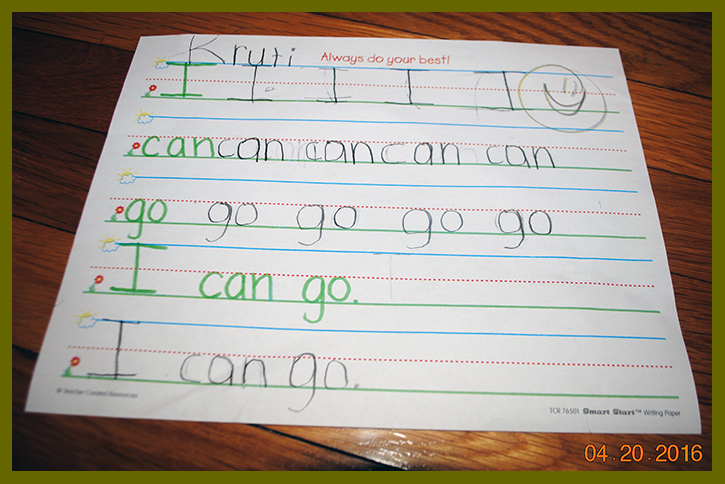 Kruti Always do your best!
I I I I I
can can can can can
go go go go go
I can go.
I can go.
© Teacher Created Resources
TCR 76501 Smart Start™ Writing Paper
04.20.2016